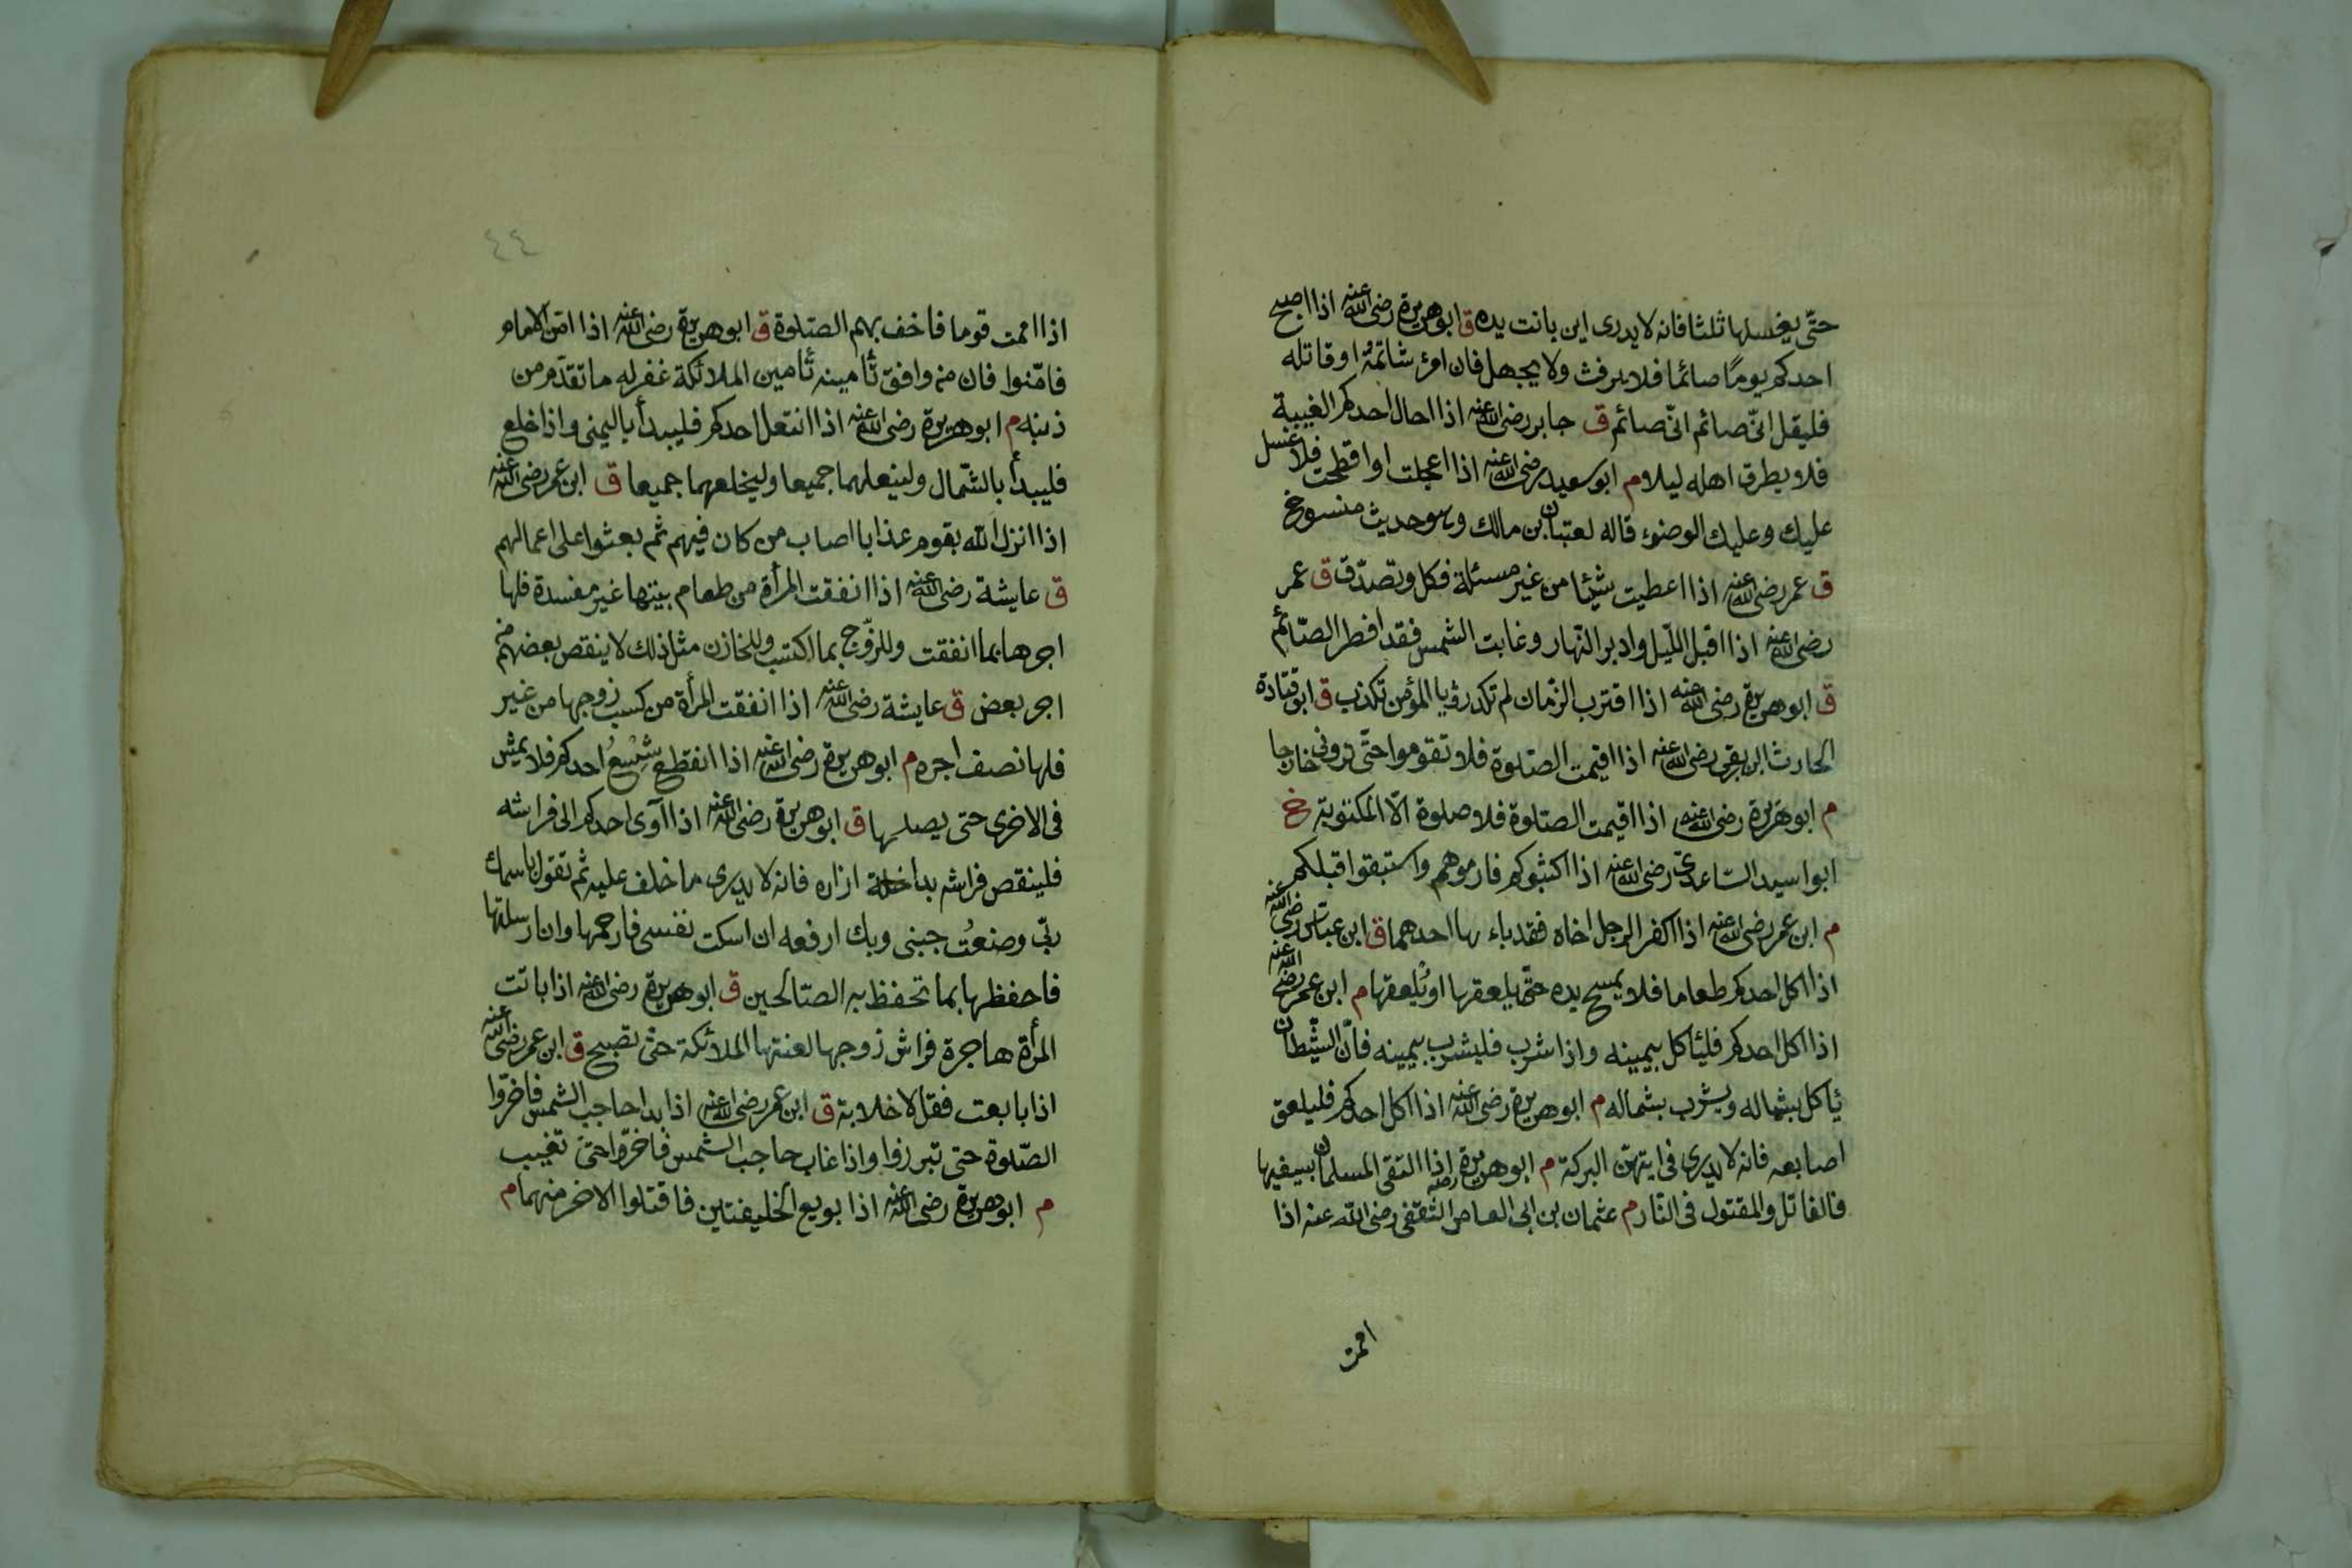 حتّى يغسلها ثلثا فانه لا يدرى اين باتت يده ق ابو هريرة رضى الله عنه اذا اصبح
احدكم يومًا صائما فلا يرفث ولا يجهل فان امرؤ شاتمهُ او قاتله
فليقل انّى صائم انّى صائم ق جابر رضى الله عنه اذا احال احدكم الغيبة
فلا يطرق اهله ليلا م ابو سعيد رضى الله عنه اذا اعجلت او اقحطت فلا غسل
عليك وعليك الوضوء قاله لعتبان بن مالك وهو حديث منسوخ
ق عمر رضى الله عنه اذا اعطيت شيئا من غير مسئلة فكل وتصدّق ق عمر
رضى الله عنه اذا اقبل اللّيل وادبر النّهار وغابت الشمس فقد افطر الصّائم
ق ابو هريرة رضى الله عنه اذا اقترب الزّمان لم تكد رؤيا المؤمن تكذب ق ابو قتادة
الحارث الربعى رضى الله عنه اذا اقيمت الصّلوة فلا تقوموا حتّى ترونى خارجا
م ابو هريرة رضى الله عنه اذا اقيمت الصّلوة فلا صلوة الّا المكتوبة خ
ابو اسيد السّاعدىّ رضى الله عنه اذا اكثبوكم فارموهم واستبقوا قبلكم
م ابن عمر رضى الله عنه اذا اكفر الرجل اخاه فقد باء بها احدهما ق ابن عباس رضى الله عنه
اذا اكل احدكم طعاما فلا يمسح يده حتّى يلعقها او يُلعقها م ابن عمر رضى الله عنه
اذا اكل احدكم فليأكل بيمينه واذا شرب فليشرب بيمينه فانّ الشّيطان
يأكل بشماله ويشرب بشماله م ابو هريرة رضى الله عنه اذا اكل احدكم فليلعق
اصابعه فانه لا يدرى فى ايتهنّ البركة م ابو هريرة رضه اذا التقى المسلمان بسيفيهما
فالقاتل والمقتول فى النّار م عثمان بن ابى العاص الثقفى رضى الله عنه اذا
اممت
٤٤
اذا اممت قوما فاخف بهم الصّلوة ق ابو هريرة رضى الله عنه اذا امّن الامام
فامّنوا فان من وافق تأمينه تأمين الملائكة غفر له ما تقدّم من
ذنبه م ابو هريرة رضى الله عنه اذا انتعل احدكم فليبدأ باليمنى واذا خلع
فليبدأ بالشّمال ولينعلهما جميعا وليخلعهما جميعا ق ابن عمر رضى الله عنه
اذا انزل الله بقوم عذابا اصاب من كان فيهم ثم بعثوا على اعمالهم
ق عايشة رضى الله عنه اذا انفقت المرأة من طعام بيتها غير مفسدة فلها
اجرها بما انفقت وللزّوج بما اكتسب وللخازن مثل ذلك لا ينقص بعضهم من
اجر بعض ق عايشة رضى الله عنه اذا انفقت المرأة من كسب زوجها من غير
فلها نصف اجره م ابو هريرة رضى الله عنه اذا انقطع شِسْعُ احدكم فلا يمش
فى الاخرى حتى يصلها ق ابو هريرة رضى الله عنه اذا آوى احدكم الى فراشه
فلينقص فراشه بداخلة ازاره فانه لا يدرى ما خلف عليه ثم تقول باسمك
ربّى وضعتُ جبنى وبك ارفعه ان امسكت نفسى فارحمها وان ارسلتها
فاحفظها بما تحفظ به الصّالحين ق ابو هريرة رضى الله عنه اذا باتت
المرأة هاجرة فراش زوجها لعنتها الملائكة حتى تصبح ق ابن عمر رضى الله عنه
اذا بايعت فقل لا خلابة ق ابن عمر رضى الله عنه اذا بدا حاجب الشمس فاخرّوا
الصّلوة حتى تبرز وا واذا غاب حاجب الشمس فاخرّوا حتى تغيب
م ابو هريرة رضى الله عنه اذا بويع الخليفتين فاقتلوا الاخر منهما م